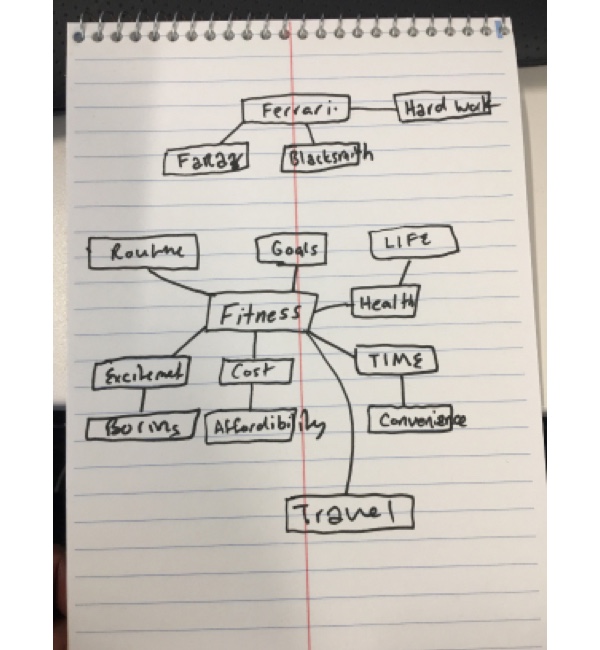 Ferrari.
Hard work
Faraz
Blacksmith
Routine
Goals
LIFE
Fitness
Health
Excitemet
Cost
TIME
Boring
Affordibility
Convenience
Travel